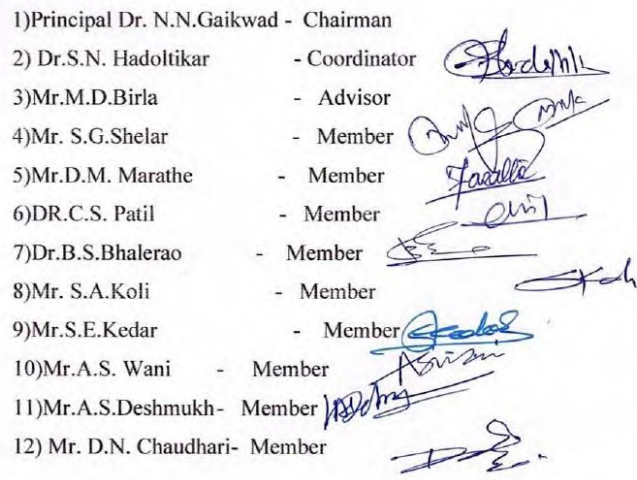 1)Principal Dr. N.N.Gaikwad - Chairman
2) Dr.S.N. Hadoltikar - Coordinator
3)Mr.M.D.Birla - Advisor
4)Mr. S.G.Shelar - Member
5)Mr.D.M. Marathe - Member
6)DR.C.S. Patil - Member
7)Dr.B.S.Bhalerao - Member
8)Mr. S.A.Koli - Member
9)Mr.S.E.Kedar - Member
10)Mr.A.S. Wani - Member
11)Mr.A.S.Deshmukh- Member
12) Mr. D.N. Chaudhari- Member